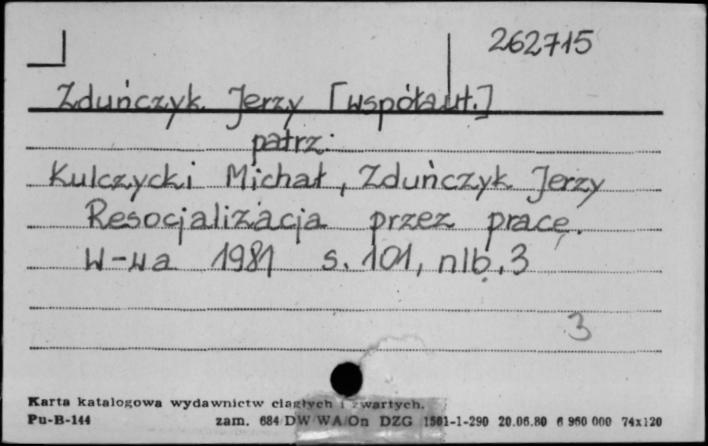 262715
Zduńczyk Jerzy [współaut.]
patrz:
Kulczycki Michał, Zduńczyk Jerzy
Resocjalizacja przez pracę.
W-wa 1981 s. 101, nlb. 3
3
Karta katalogowa wydawnictw ciągłych i zwartych.
Pu-B-144 zam. 684/DW/WA/On DZG 1561-1-290 20.06.80 6 960 000 74x120